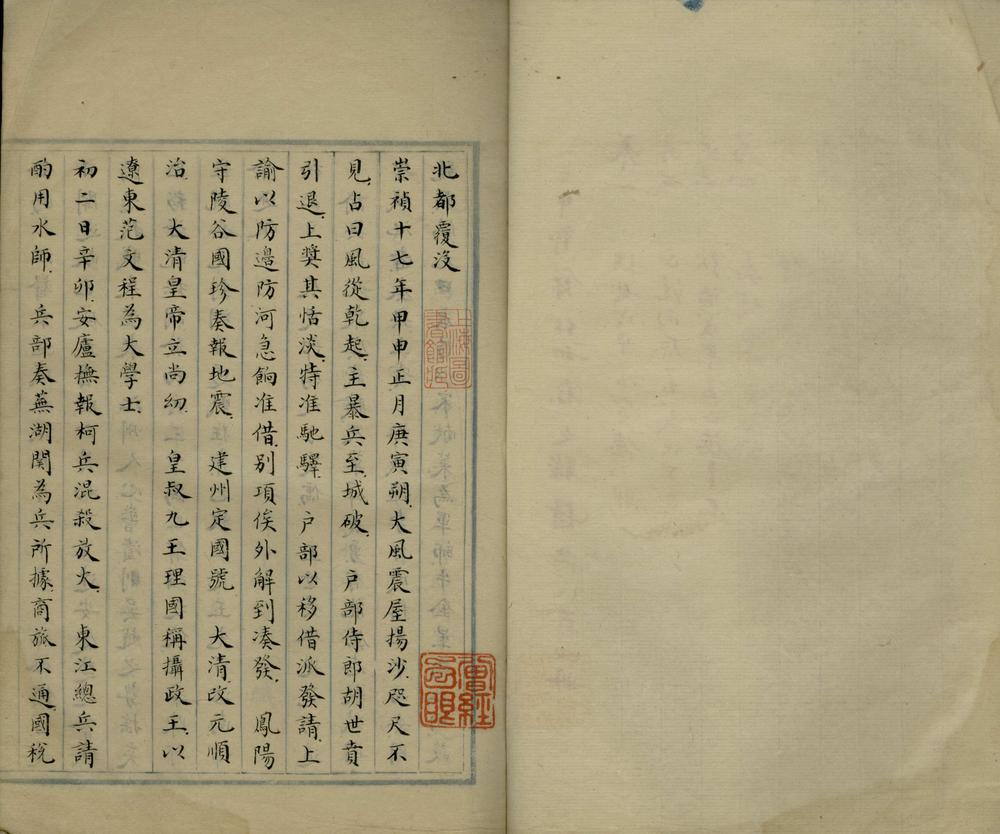 北都覆沒
崇禎十七年甲申正月庚寅朔大風震屋揚沙咫尺不
見占曰風從乾起主暴兵至城破 戶部侍郎胡世賁
引退上獎其恬淡特准馳驛 戶部以移借派發請上
諭以防邉防河急餉准借別項俟外解到湊發 鳳陽
守陵谷國珍奏報地震 建州定國號 大清改元順
治 大清皇帝立尚㓜 皇叔九王理國稱攝政王以
遼東范文程為大學士
初二日辛卯安廬撫報柯兵混殺放火 東江總兵請
酌用水師 兵部奏蕪湖関為兵所據商旅不通國稅
上海圖書館藏
曾經我眼